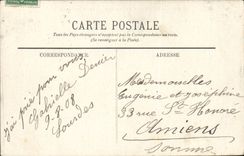 CARTE POSTALE
Tous les Pays étrangers n'acceptent pas la Correspondance au recto.
(Se renseigner à la Poste).
CORRESPONDANCE
ADRESSE
j'ai prié pour vous
Gabrielle Denier
9-9-08
Lourdes
Mesdemoiselles
Eugénie et Joséphine
33 rue St Honoré
Amiens
Somme